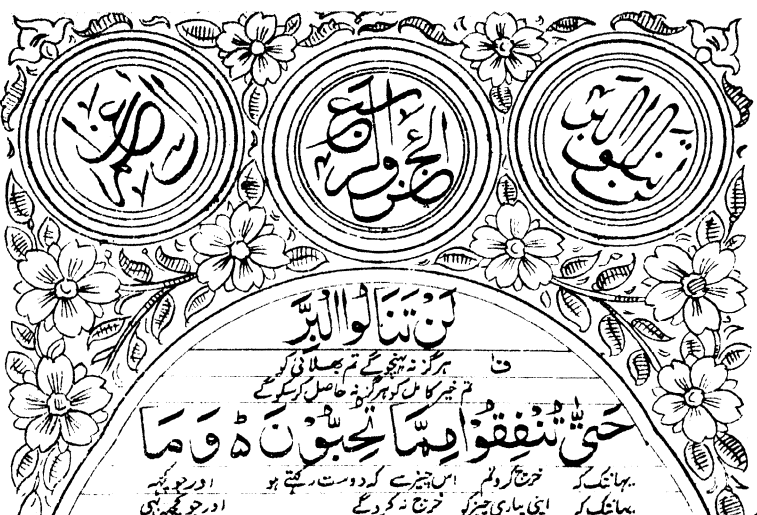 لن تنالوا البر
الجزو الرابع
لَنْ تَنَالُوا الْبِرَّ
ف ہرگز نہ پہنچوگے تم بھلائی کو
تم خیر کامل کو ہرگز نہ حاصل کر سکوگے
حَتّٰى تُنْفِقُوْا مِمَّا تُحِبُّوْنَ ۵ وَمَا
یہانتک کہ خرچ کرو تم اس چیز سے کہ دوست رکھتے ہو اور جو کچھ
یہانتک کہ اپنی پیاری چیز کو خرچ نہ کروگے اور جو کچھ بھی